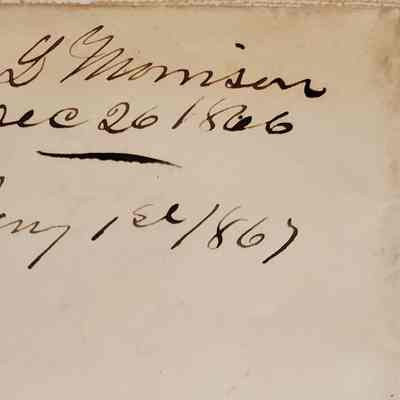 G Morrison
Dec 26 1866
Jany 1st 1867